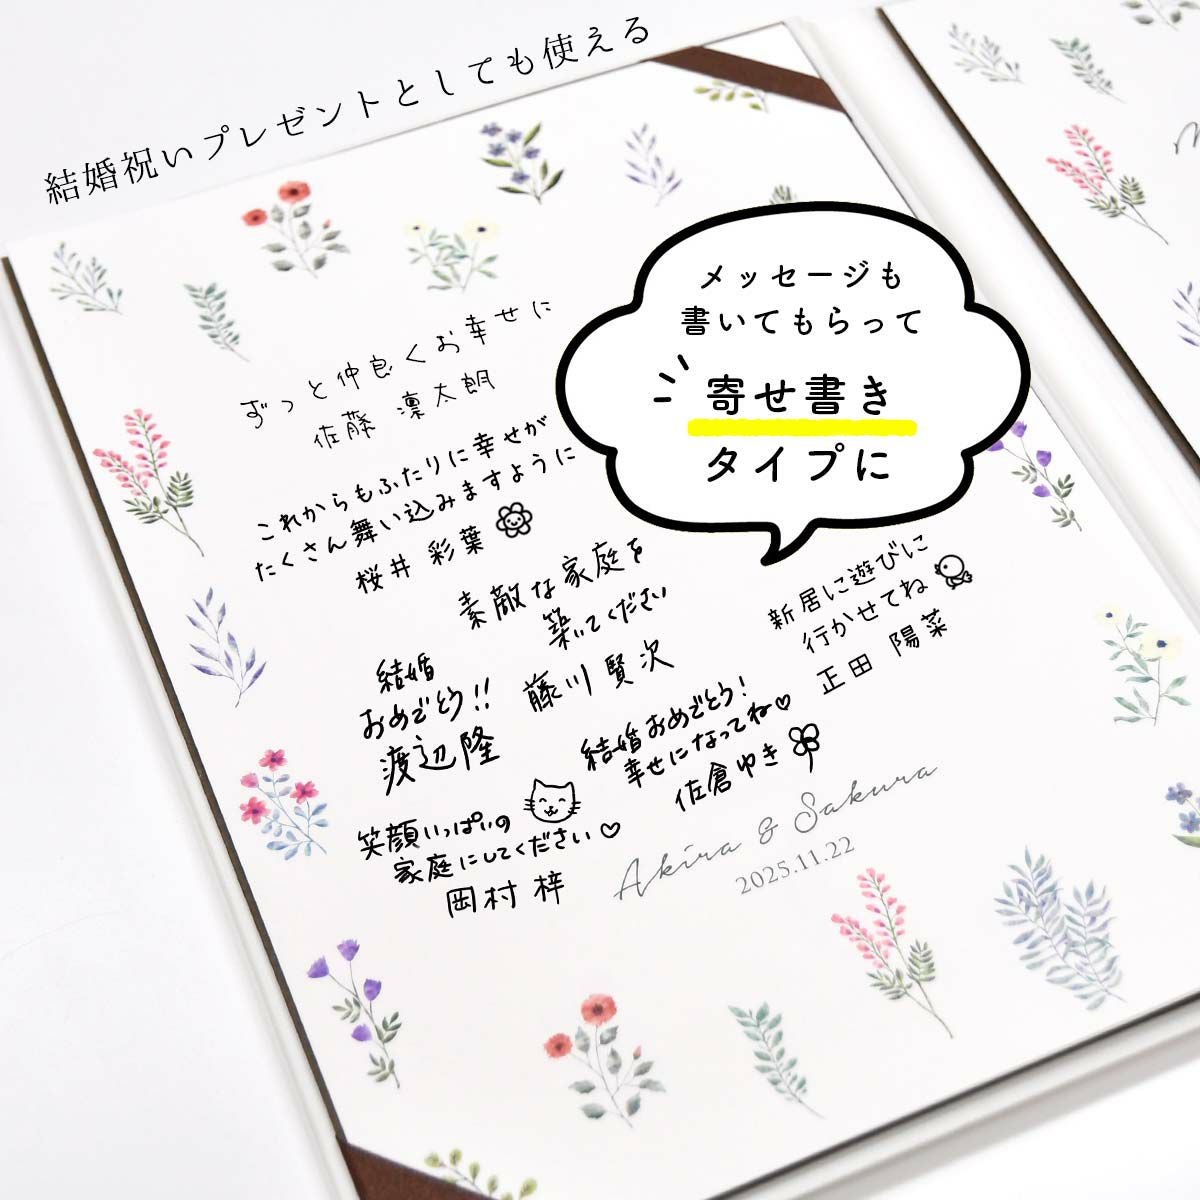 結婚祝いプレゼントとしても使える
メッセージも
書いてもらって
寄せ書き
タイプに
ずっと仲良くお幸せに
佐藤 凛太朗
これからもふたりに幸せが
たくさん舞い込みますように
桜井 彩葉
素敵な家庭を
築いてください
藤川賢次
新居に遊びに
行かせてね
正田 陽菜
結婚
おめでとう!!
渡辺隆
結婚おめでとう!
幸せになってね♡
佐倉ゆき
笑顔いっぱいの
家庭にしてください♡
岡村 梓
Akira & Sakura
2025.11.22